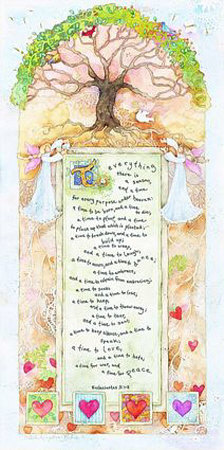 To everything
there is
a season,
and a time
for every purpose under heaven:
a time to be born, and a time
to die;
a time to plant, and a time
to pluck up that which is planted;
a time to break down, and a time to
build up;
a time to weep,
and a time to laugh;
a time to mourn, and a time to dance;
a time to embrace,
and a time to refrain from embracing;
a time to seek
and a time to lose;
a time to keep,
and a time to throw away;
a time to tear,
and a time to sew;
a time to keep silence, and a time to
speak;
a time to love,
and a time to hate;
a time for war, and
a time for peace.
Ecclesiastes 3:1-8